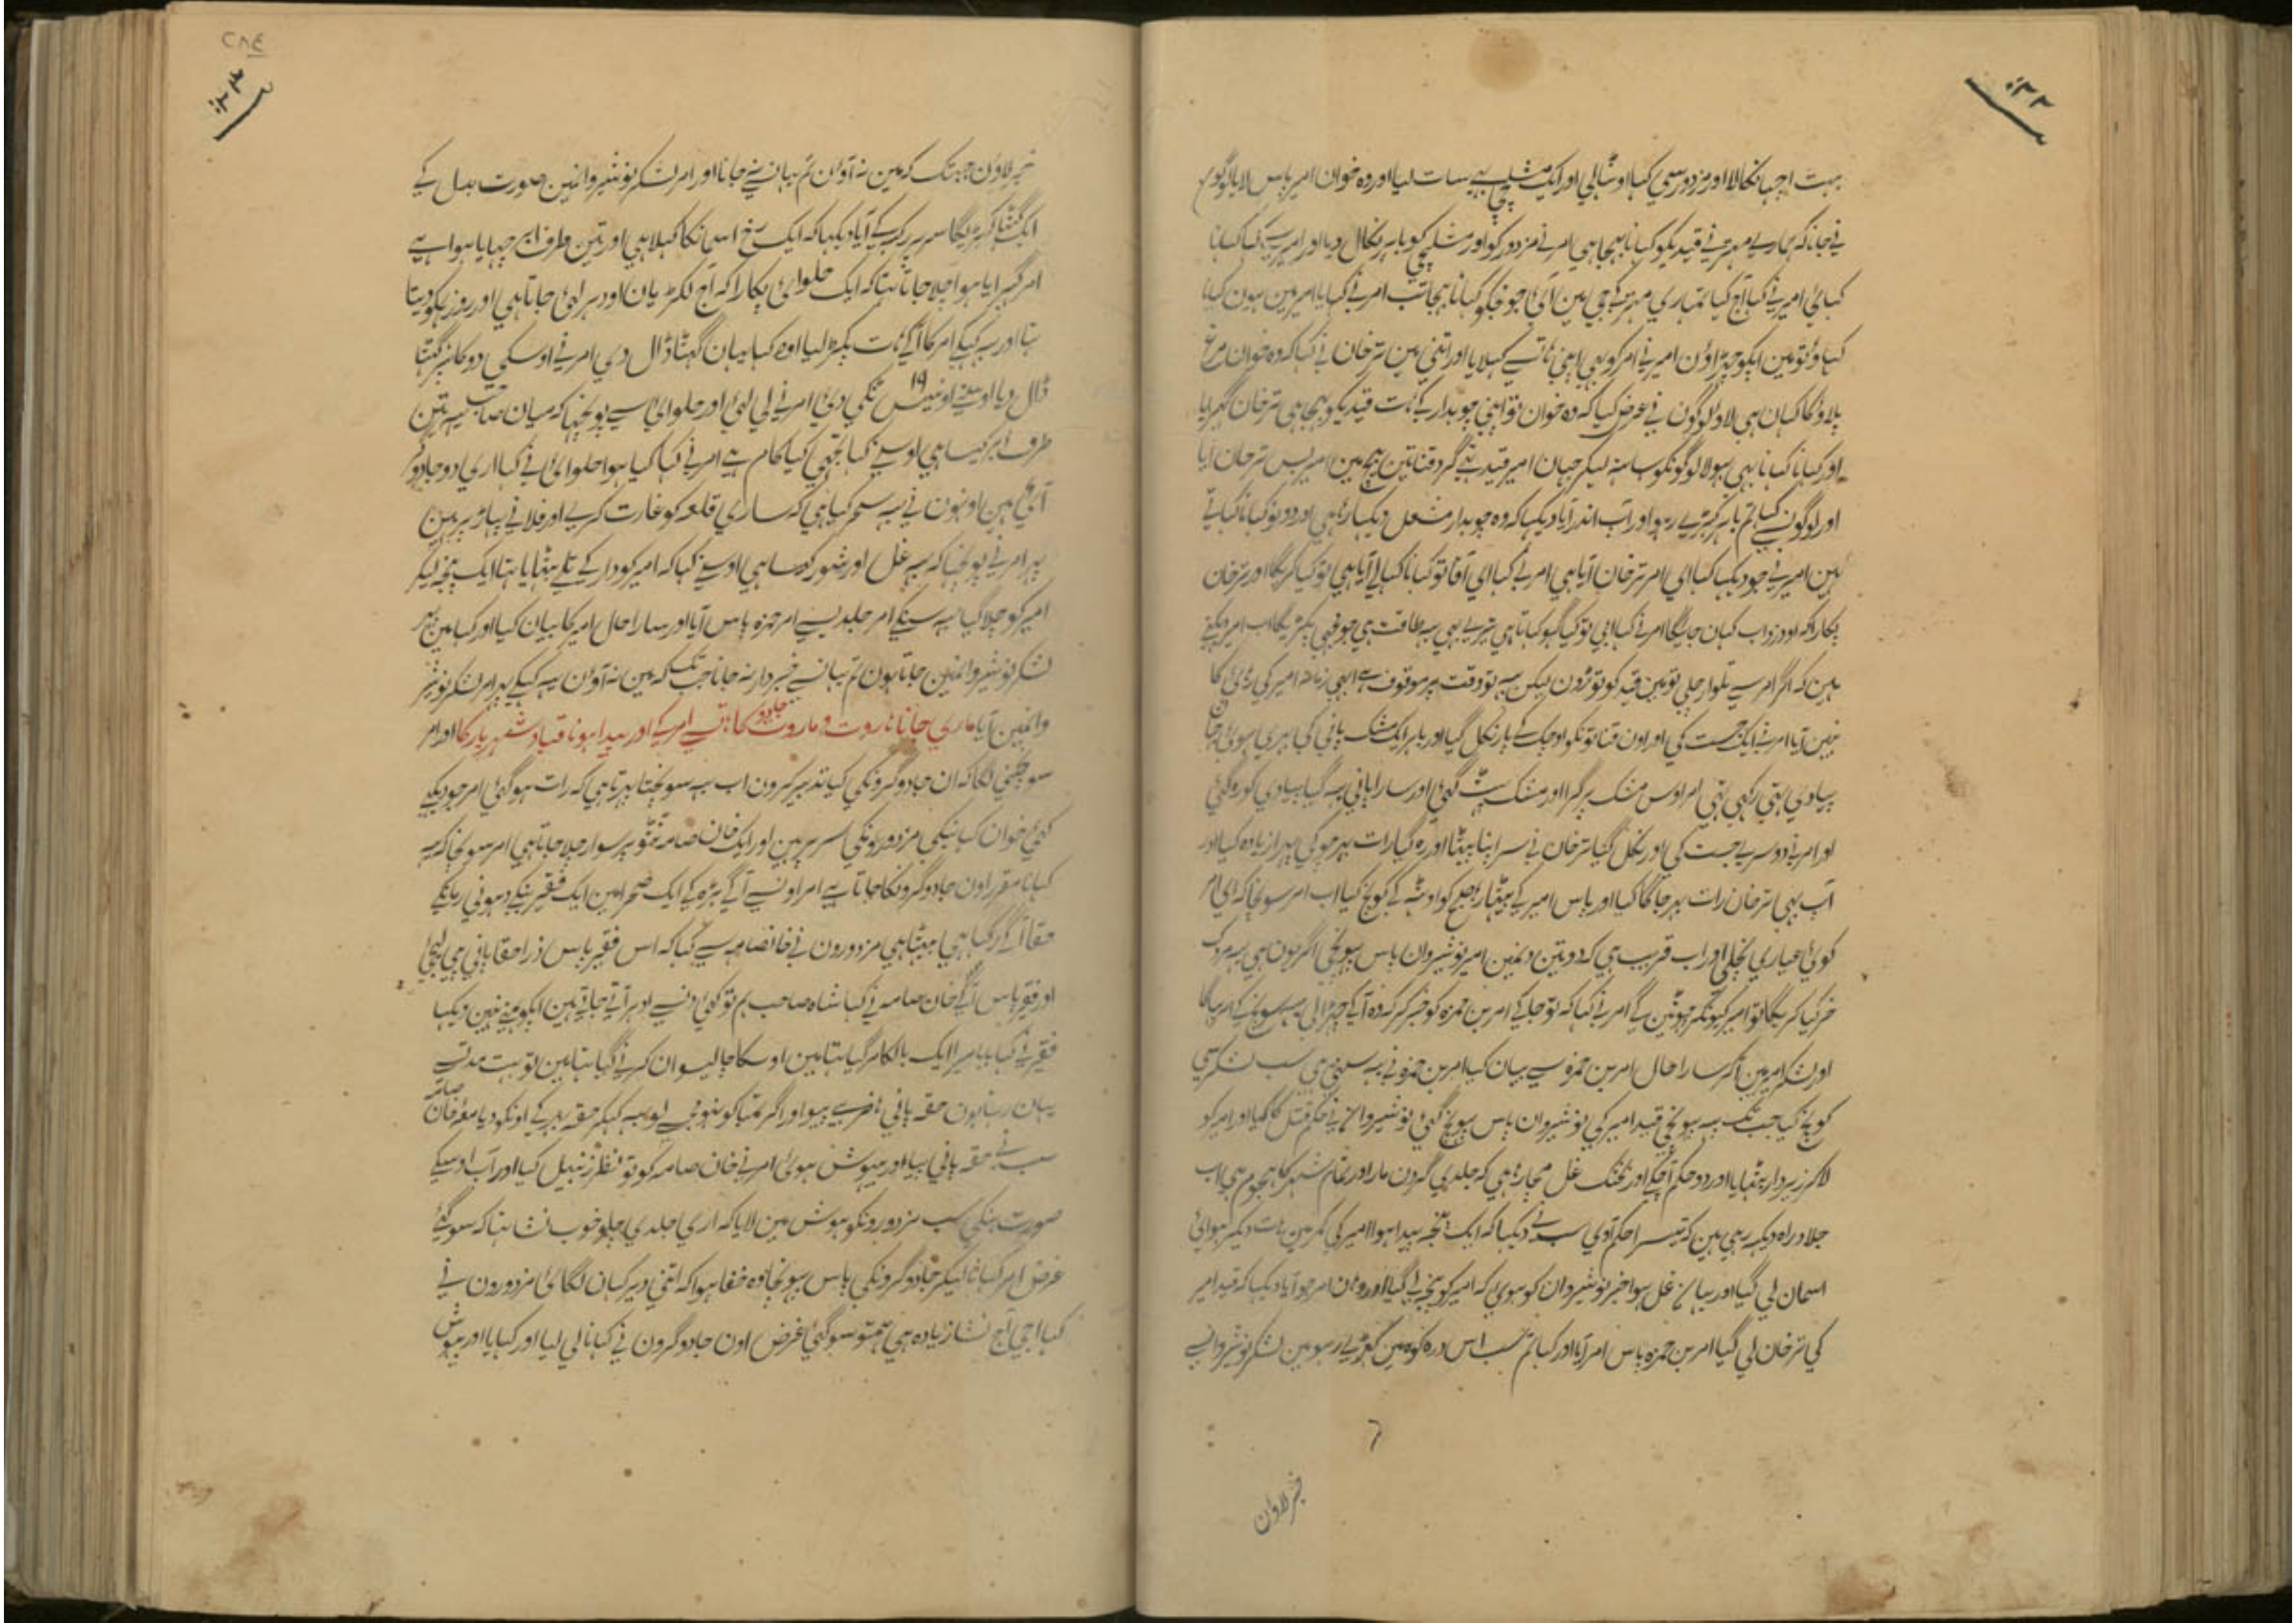 بہت اچہا نکالا اور مزدور سی کہا اوٹہالی اور ایک مشلچی سات لیا اور وہ خوان امیر پاس لایا لوگون
نی جانا کہ ہماری مہتر نی قیدیکو کہانا بہیجا ہی امر نی مزدور کو اور مشلچی کو باہر نکال دیا اور امیر سی کہا کہانا
کہائی امیر نی کہا آج کیا تمہاری مہتر کی جی مین آئی جو مجکو کہانا بہیجا تب امر نی کہا یا امیر مین ہون کہانا
کہاؤ تو مین اپکو چہڑاؤن امیر نی امر کو بہی اپنی ہاتہ سی کہلایا اور اتنی مین ترخان نی کہا کہ وہ خوان مرغ
پلاؤ کا کہان ہی لاؤ لوگون نی عرض کیا کہ وہ خوان تو اپنی چوبدار کی ہات قیدیکو بہیجا ہی ترخان گہبرایا
اور کہانا کہانا بہی بہولا لوگونکو ساتہ لیکر جہان امیر قید تہی گرد قناتین بیچ مین امیر پس ترخان آیا
اور لوگونسی کہا تم باہر کہڑی رہو اور آب اندر آیا دیکہا کہ وہ چوبدار مشعل دیکہا رہا ہی اور دونو کہانا کہاتی
ہین امیر نی جو دیکہا کہا ای امر ترخان آیا ہی امر نی کہا ای آقا تو کہانا کہا لی آیا ہی تو کیا کریگا اور ترخان
پکارا کہ او دزد اب کہان جایگا امر نی کہا ابی تو کیا گہو کہاتا ہی تیری بہی یہ طاقت ہی جو مجہی پکڑیگا اب امیر دیکہتی
ہین کہ اگر امر سی تلوار چلی تو مین قید کو توڑون لیکن یہ تو وقت پر موقوف ہی ابہی زمانہ امیر کی رہائی کا
نہین آیا امر نی ایک جست کی اور اون قناتونکو اوچک کی پار نکل گیا اور باہر ایک مشک پانی کی بہری ہوئی جہان
پیادی تہی رکہی تہی امر اوس مشک پر گرا اور مشک پہٹ گئی اور سارا پانی بہ گیا پیادی کودہ گئی
اور امر نی دوسری جست کی اور نکل گیا ترخان نی سر اپنا پیٹا اور رہ گیا رات بہر چوکی پہرا زیادہ کیا اور
آب بہی ترخان رات بہر جاگا کیا اور پاس امیر کی بیٹہا رہا صبح کو اوٹہ کی کوچ کیا اب امر سونچا کہ ای امر
کوئی عیاری نچلی اور اب قریب ہی کہ دو تین دنمین امیر نوشیروان پاس پہونچی اگر یونہی یہ مردک
خر گیا کریگا تو امیر کیونکر چہوٹین گی امر نی کہا کہ تو جا کی امر بن حمزہ کو خبر کر کہ وہ آ کی چہڑا لی یہ سونچ کی امر بہاگا
اور لشکر امیر مین آکر سارا حال امر بن حمزہ سی بیان کیا امر بن حمزہ نی یہ سنتی ہی سب لشکر سی
کوچ کیا جب تک یہ پہونچی قید امیر کی نوشیروان پاس پہونچ گئی نوشیروان نی حکم قتل کا کیا اور امیر کو
لا کر زیر دار بٹہایا اور دو حکم آچکی اور بختک غل مچا رہا ہی کہ جلدی گردن مار اور تمام شہر کا ہجوم ہی اب
جلاد راہ دیکہہ رہی ہین کہ تیسرا حکم آوی سب نی دیکہا کہ ایک پنجہ پیدا ہوا امیر کی کمر مین ہات دیکر ہوائی
اسمان لی گیا اور یہان غل ہوا خبر نوشیروان کو ہوئی کہ امیر کو پنجہ لی گیا اور وہان امر جو آیا دیکہا کہ قید امیر
کی ترخان لی گیا امر بن حمزہ پاس امر آیا اور کہا تم سب اس درہ کوہ مین کہڑی رہو مین لشکر نوشیروان سی
خبر لاون
خبر لاؤن جبتک کہ مین نہ آؤن تم یہان سی نجانا اور امر لشکر نوشیروانمین صورت بدل کی
ایک گٹہا لکڑیکا سر پر رکہ کی آیا دیکہا کہ ایک رخ اسمانکا کہلا ہی اور تین طرف ابر چہایا ہوا ہی
امر گہبرایا ہوا چلا جاتا تہا کہ ایک حلوائی پکارا کہ آج لکڑیان اودہر لی جاتا ہی اور روز ہمکو دیتا
تہا اور یہ کہکی امر کا آ کی ہات پکڑ لیا اور کہا یہان گٹہا ڈال دی امر نی اوسکی دوکان پر گٹہا
ڈال دیا اوسنی اونیس ١٩ ٹکی دئی امر نی لی لئی اور حلوائی سی پوچہا کہ میان صاحب یہ تین
طرف ابر کیسا ہی اوسنی کہا تجہی کیا کام ہی امر نی کہا کیا ہوا حلوائی نی کہا اری دو جادوگر
آئی ہین اونہون نی یہ سحر کیا ہی کہ ساری قلعہ کو غارت کری اور فلانی پہاڑ پر ہین
پہر امر نی پوچہا کہ یہ غل اور شور کیسا ہی اوسنی کہا کہ امیر کو دار کی تلی بٹہایا تہا ایک پنجہ لیکر
امیر کو چلا گیا یہ سنکی امر جلد یسی امر حمزہ پاس آیا اور سارا حال امیر کا بیان کیا اور کہا مین پہر
لشکر نوشیروانمین جاتا ہون تم یہان سی خبردار نہ جانا جب تک کہ مین نہ آؤن یہ کہکی پہر امر لشکر نوشیر
وانمین آیا ماری جانا ہاروت و ماروت جادو کا ہات سی امر کی اور پیدا ہونا قباد شہریار کا اور امر
سونچنی لگا کہ ان جادوگرونکی کیا تدبیر کرون اب یہ سونچتا پہرتا ہی کہ رات ہو گئی امر جو دیکہی
کئی خوان کہانیکی مزدورونکی سر پر ہین اور ایک خان صامہ ٹٹو پر سوار چلا جاتا ہی امر سونچا کہ یہ
کہانا مقرر اون جادوگرونکا جاتا ہی امر اونسی آگی بڑہ کی ایک صحرا مین ایک فقیر بنکی دہونی رما کی
حقا آگی رکہا ہی بیٹہا ہی مزدورون نی خانصامہ سی کہا کہ اس فقیر پاس ذرا حقا پانی پی لیجی
اور فقیر پاس آ کی خان صامہ نی کہا شاہ صاحب ہم تو کئی دنسی ادہر آتی جاتی ہین اپکو ہمنی نہین دیکہا
فقیر نی کہا بابا میرا ایک بالکا مر گیا تہا مین اوسکا چالیسوان کرنی گیا تہا مین تو بہت مدت سی
یہان رہتا ہون حقہ پانی حاضر ہی پیو اور اگر تمباکو نہو مجہسی لو یہ کہکر حقہ بہر کی اونکو دیا معہ خان صامہ
سب نی حقہ پانی پیا اور بیہوش ہوئی امر نی خان صامہ کو تو نظر زنبیل کیا اور آب اوسیکی
صورت بنکی سب مزدورونکو ہوش مین لایا کہ اری جلدی چلو خوب نشا تہا کہ سو گئی
غرض امر کہانا لیکر جادوگرونکی پاس پہونچا وہ خفا ہوا کہ اتنی دیر کہان لگائی مزدورون نی
کہا اجی آج نشا زیادہ پی تہی ہمتو سو گئی غرض اون جادوگرون نی کہانا لی لیا اور کہایا اور بیہوش